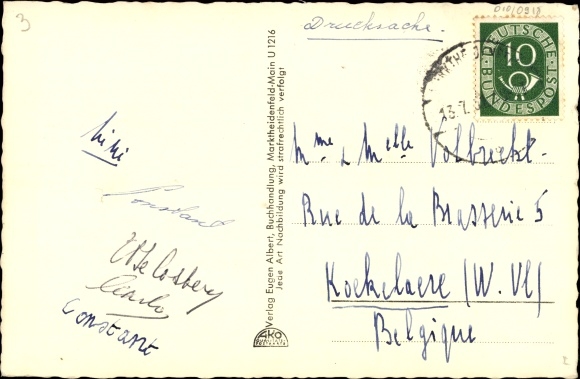 3
Drucksache.
010/0918
DEUTSCHE
10
BUNDESPOST
13.7.
Kiki
Constant
Constant
Verlag Eugen Albert, Buchhandlung, Marktheidenfeld-Main U 1216
Jede Art Nachbildung wird strafrechtlich verfolgt
Mme & Melle Volbrecht.
Rue de la Brasserie 5
Koekelaere (W. Vl)
Belgique